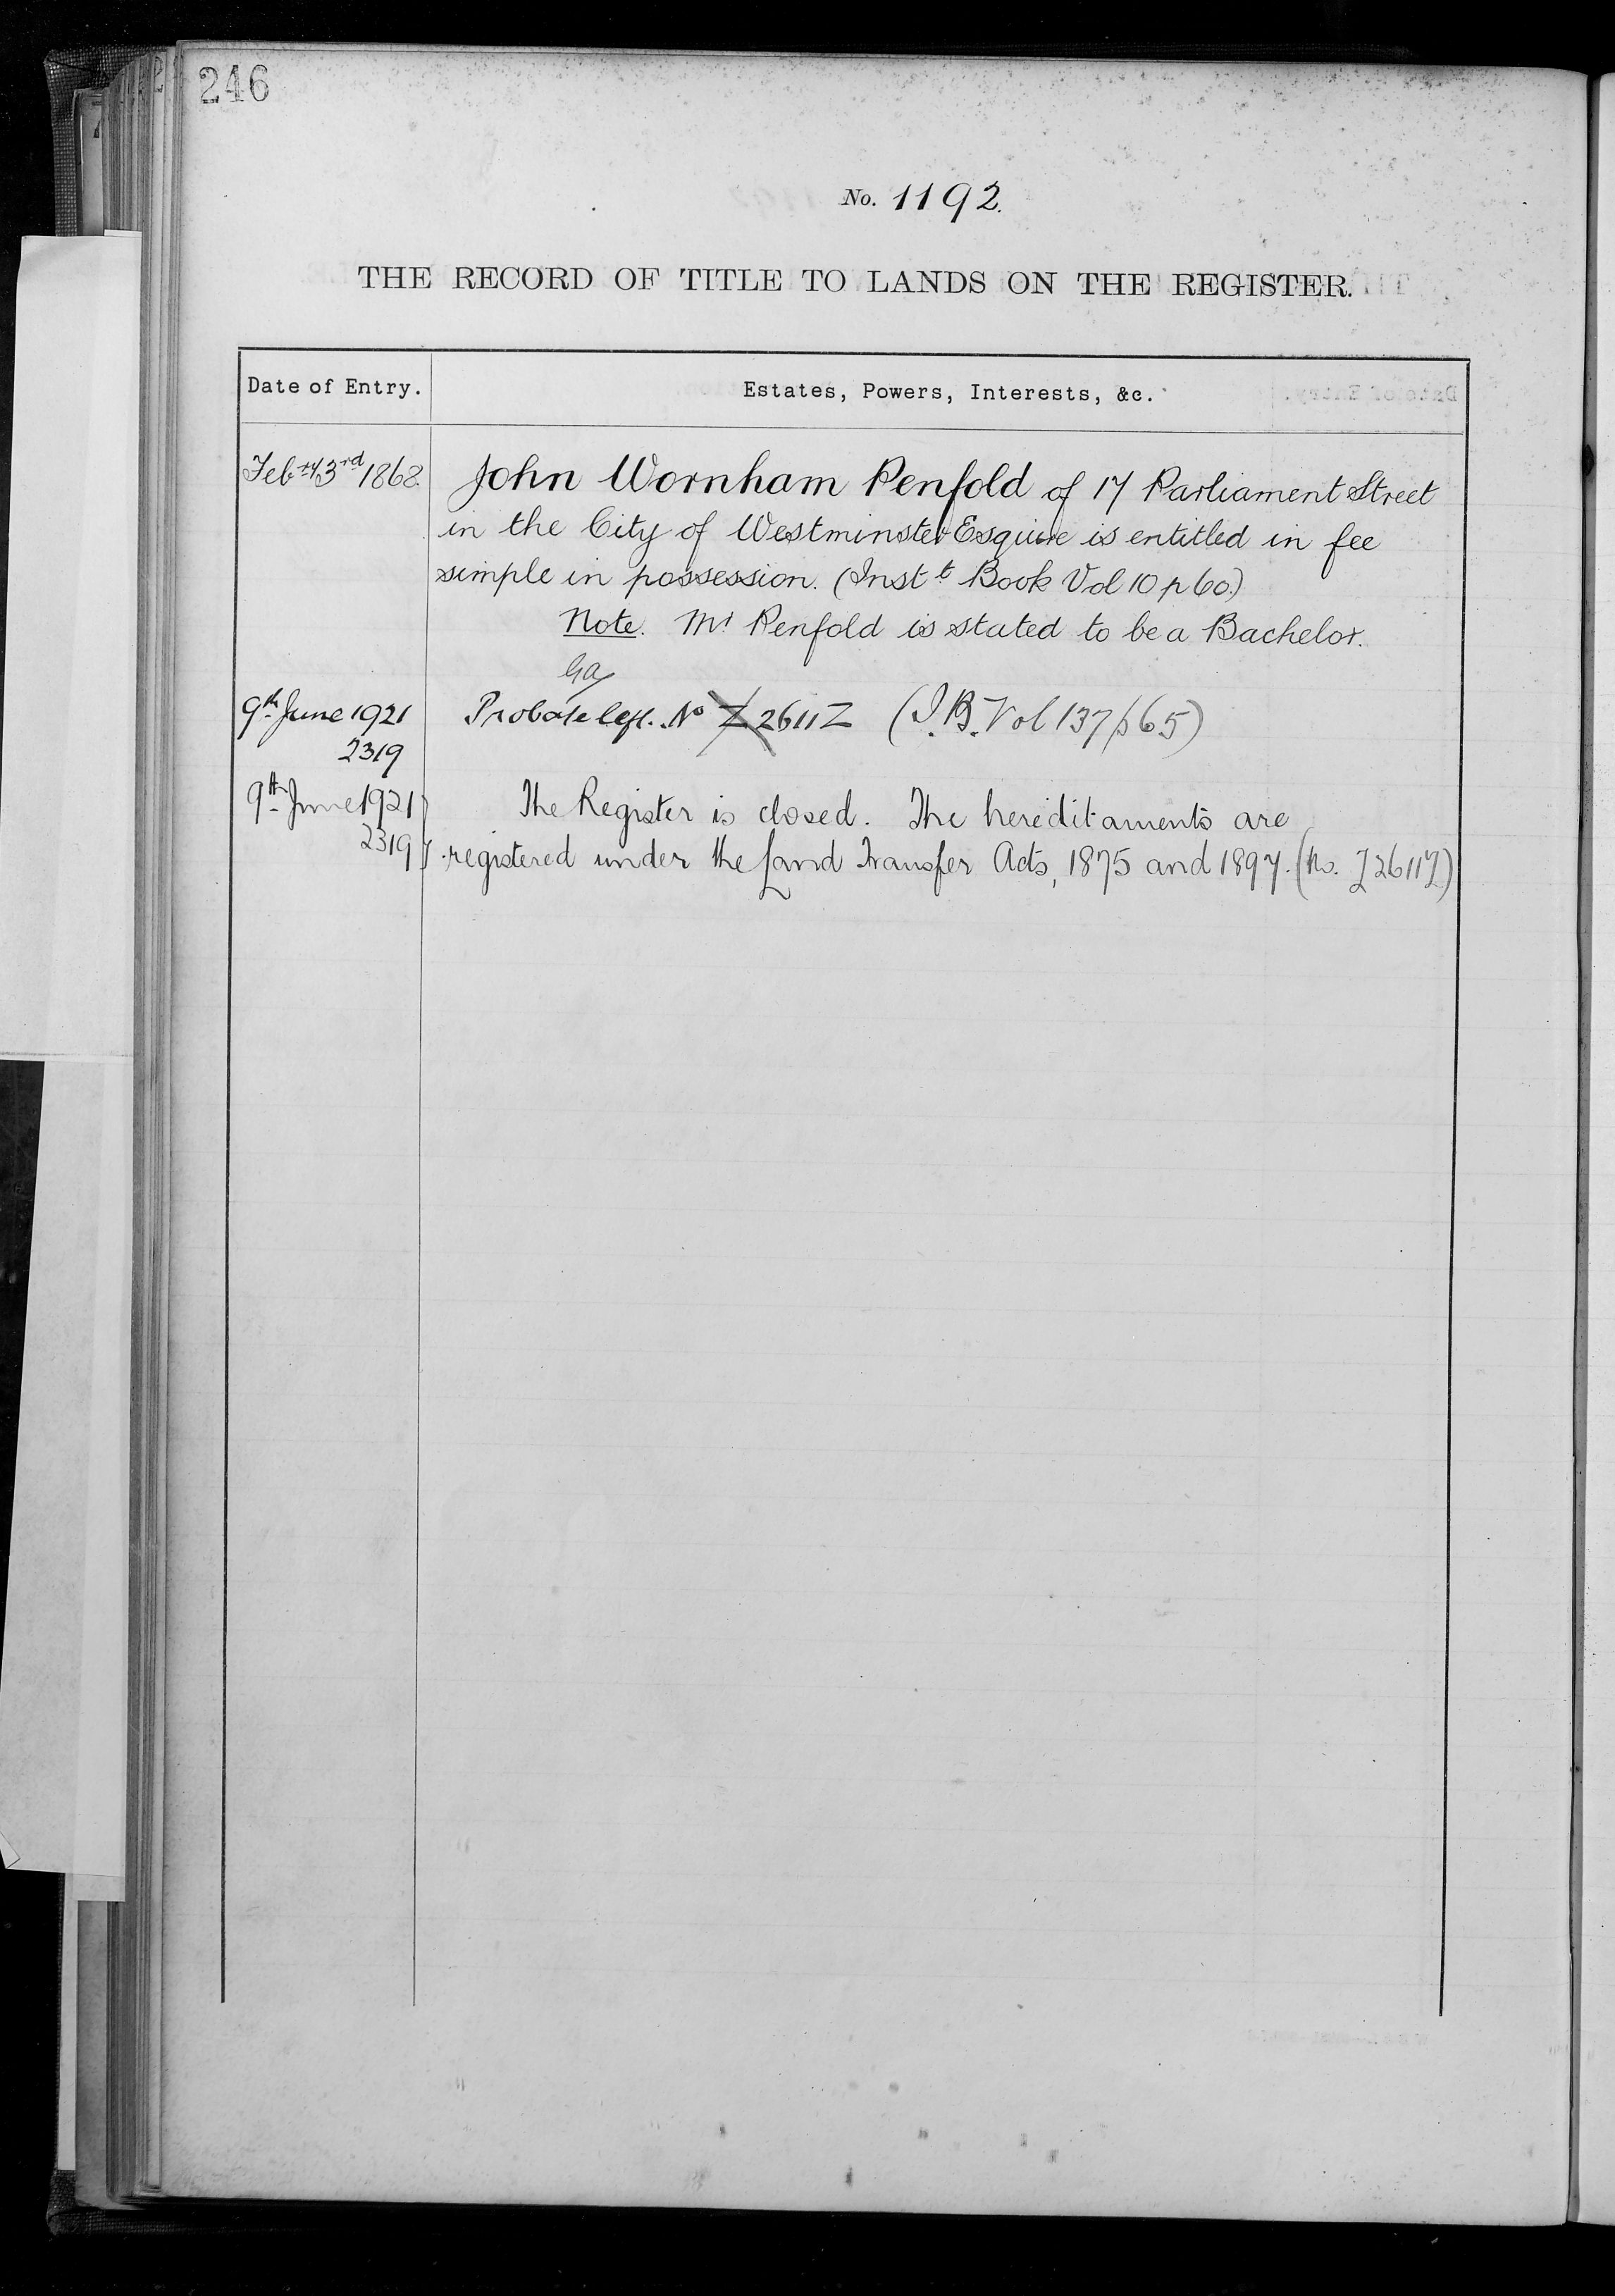 246
No. 1192.
THE RECORD OF TITLE TO LANDS ON THE REGISTER.
Date of Entry.
Estates, Powers, Interests, &c.
Feb ry 3rd 1868. John Wornham Penfold of 17 Parliament Street
in the City of Westminster Esquire is entitled in fee
simple in possession. (Inst t Book Vol 10 p 60.)
Note. Mr Penfold is stated to be a Bachelor.
9th June 1921 Probate No Z 2611Z (I.B. Vol 137/p65)
2319
9th June 1921 The Register is closed. The hereditaments are
2319 registered under the Land Transfer Acts, 1875 and 1897. (No. Z2611Z)